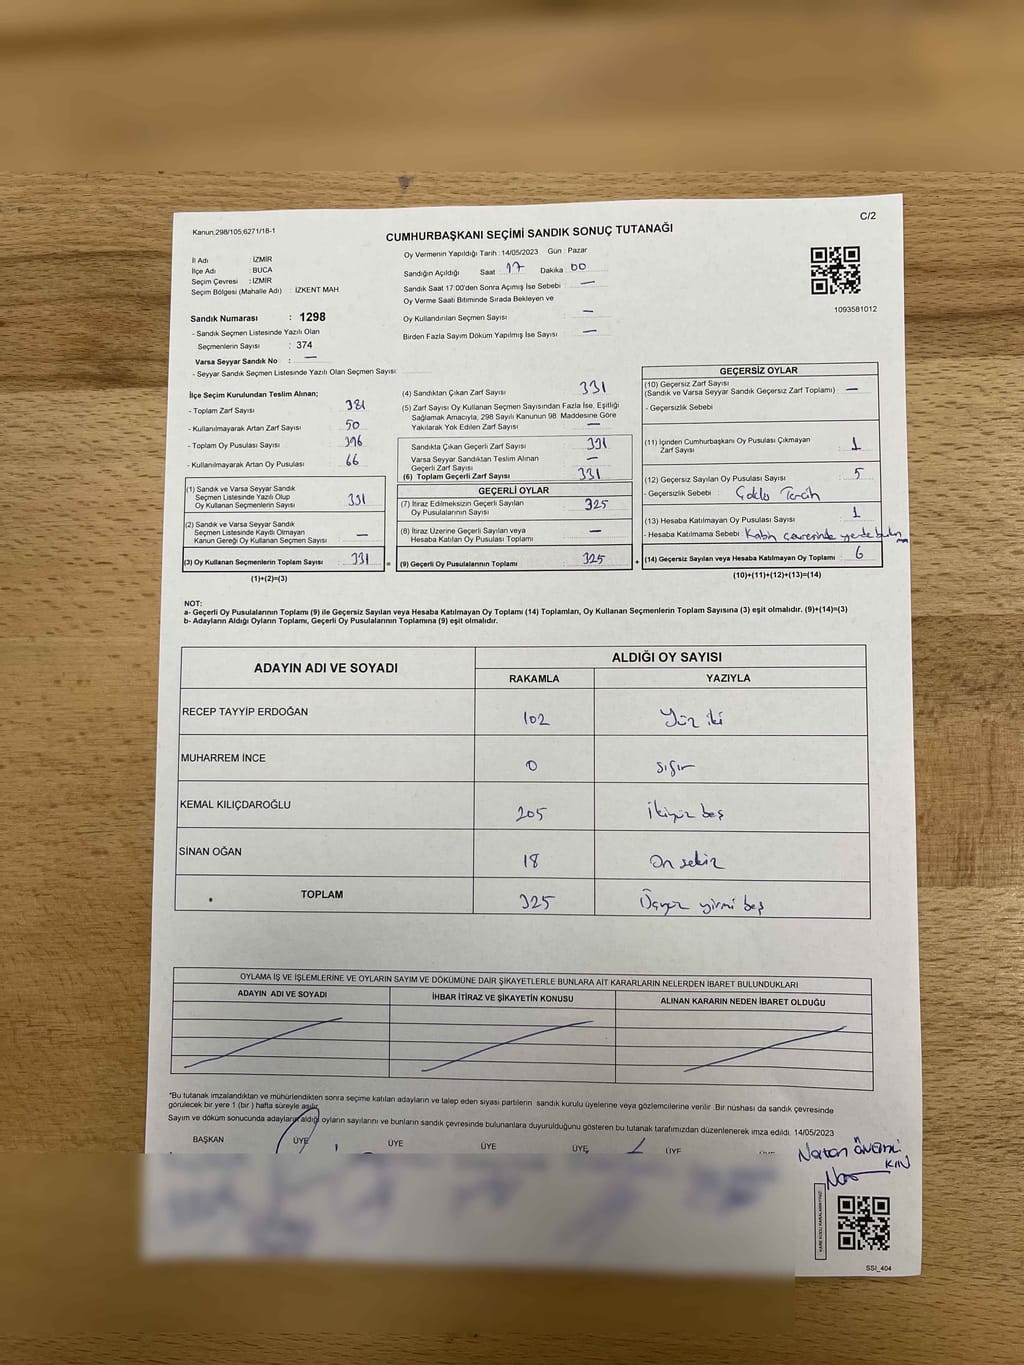 Kanun,298/105,6271/18-1
C/2
CUMHURBAŞKANI SEÇİMİ SANDIK SONUÇ TUTANAĞI
İl Adı : İZMİR
İlçe Adı : BUCA
Seçim Çevresi : İZMİR
Seçim Bölgesi (Mahalle Adı) : İZKENT MAH.
Sandık Numarası : 1298
- Sandık Seçmen Listesinde Yazılı Olan
Seçmenlerin Sayısı : 374
Varsa Seyyar Sandık No : —
- Seyyar Sandık Seçmen Listesinde Yazılı Olan Seçmen Sayısı
Oy Vermenin Yapıldığı Tarih : 14/05/2023 Gün : Pazar
Sandığın Açıldığı Saat 17 Dakika 00
Sandık Saat 17.00'den Sonra Açımış İse Sebebi : —
Oy Verme Saati Bitiminde Sırada Bekleyen ve
Oy Kullandırılan Seçmen Sayısı : —
Birden Fazla Sayım Döküm Yapılmış İse Sayısı : —
1093581012
İlçe Seçim Kurulundan Teslim Alınan;
- Toplam Zarf Sayısı : 381
- Kullanılmayarak Artan Zarf Sayısı : 50
- Toplam Oy Pusulası Sayısı : 396
- Kullanılmayarak Artan Oy Pusulası : 66
(1) Sandık ve Varsa Seyyar Sandık
Seçmen Listesinde Yazılı Olup
Oy Kullanan Seçmenlerin Sayısı : 331
(2) Sandık ve Varsa Seyyar Sandık
Seçmen Listesinde Kayıtlı Olmayan
Kanun Gereği Oy Kullanan Seçmen Sayısı : —
(3) Oy Kullanan Seçmenlerin Toplam Sayısı : 331
(1)+(2)=(3)
(4) Sandıktan Çıkan Zarf Sayısı : 331
(5) Zarf Sayısı Oy Kullanan Seçmen Sayısından Fazla İse, Eşitliği
Sağlamak Amacıyla, 298 Sayılı Kanunun 98. Maddesine Göre
Yakılarak Yok Edilen Zarf Sayısı : —
Sandıkta Çıkan Geçerli Zarf Sayısı : 331
Varsa Seyyar Sandıktan Teslim Alınan
Geçerli Zarf Sayısı : —
(6) Toplam Geçerli Zarf Sayısı : 331
GEÇERLİ OYLAR
(7) İtiraz Edilmeksizin Geçerli Sayılan
Oy Pusulalarının Sayısı : 325
(8) İtiraz Üzerine Geçerli Sayılan veya
Hesaba Katılan Oy Pusulası Toplamı : —
= (9) Geçerli Oy Pusulalarının Toplamı : 325 +
GEÇERSİZ OYLAR
(10) Geçersiz Zarf Sayısı
(Sandık ve Varsa Seyyar Sandık Geçersiz Zarf Toplamı) : —
- Geçersizlik Sebebi :
(11) İçinden Cumhurbaşkanı Oy Pusulası Çıkmayan
Zarf Sayısı : 1
(12) Geçersiz Sayılan Oy Pusulası Sayısı : 5
- Geçersizlik Sebebi : Çoklu Tercih
(13) Hesaba Katılmayan Oy Pusulası Sayısı : 1
- Hesaba Katılmama Sebebi : Kabin çevresinde yerde
(14) Geçersiz Sayılan veya Hesaba Katılmayan Oy Toplamı : 6
(10)+(11)+(12)+(13)=(14)
NOT:
a- Geçerli Oy Pusulalarının Toplamı (9) ile Geçersiz Sayılan veya Hesaba Katılmayan Oy Toplamı (14) Toplamları, Oy Kullanan Seçmenlerin Toplam Sayısına (3) eşit olmalıdır. (9)+(14)=(3)
b- Adayların Aldığı Oyların Toplamı, Geçerli Oy Pusulalarının Toplamına (9) eşit olmalıdır.
ADAYIN ADI VE SOYADI ALDIĞI OY SAYISI
RAKAMLA YAZIYLA
RECEP TAYYİP ERDOĞAN 102 Yüz iki
MUHARREM İNCE 0 Sıfır
KEMAL KILIÇDAROĞLU 205 İkiyüz beş
SİNAN OĞAN 18 On sekiz
TOPLAM 325 Üçyüz yirmi beş
OYLAMA İŞ VE İŞLEMLERİNE VE OYLARIN SAYIM VE DÖKÜMÜNE DAİR ŞİKAYETLERLE BUNLARA AİT KARARLARIN NELERDEN İBARET BULUNDUKLARI
ADAYIN ADI VE SOYADI İHBAR İTİRAZ VE ŞİKAYETİN KONUSU ALINAN KARARIN NEDEN İBARET OLDUĞU
*Bu tutanak imzalandıktan ve mühürlendikten sonra seçime katılan adayların ve talep eden siyasi partilerin sandık kurulu üyelerine veya gözlemcilerine verilir. Bir nüshası da sandık çevresinde
görülecek bir yere 1 (bir ) hafta süreyle asılır.
Sayım ve döküm sonucunda adayların aldığı oyların sayılarını ve bunların sandık çevresinde bulunanlara duyurulduğunu gösteren bu tutanak tarafımızdan düzenlenerek imza edildi. 14/05/2023
BAŞKAN ÜYE ÜYE ÜYE ÜYE ÜYE
SSI_404